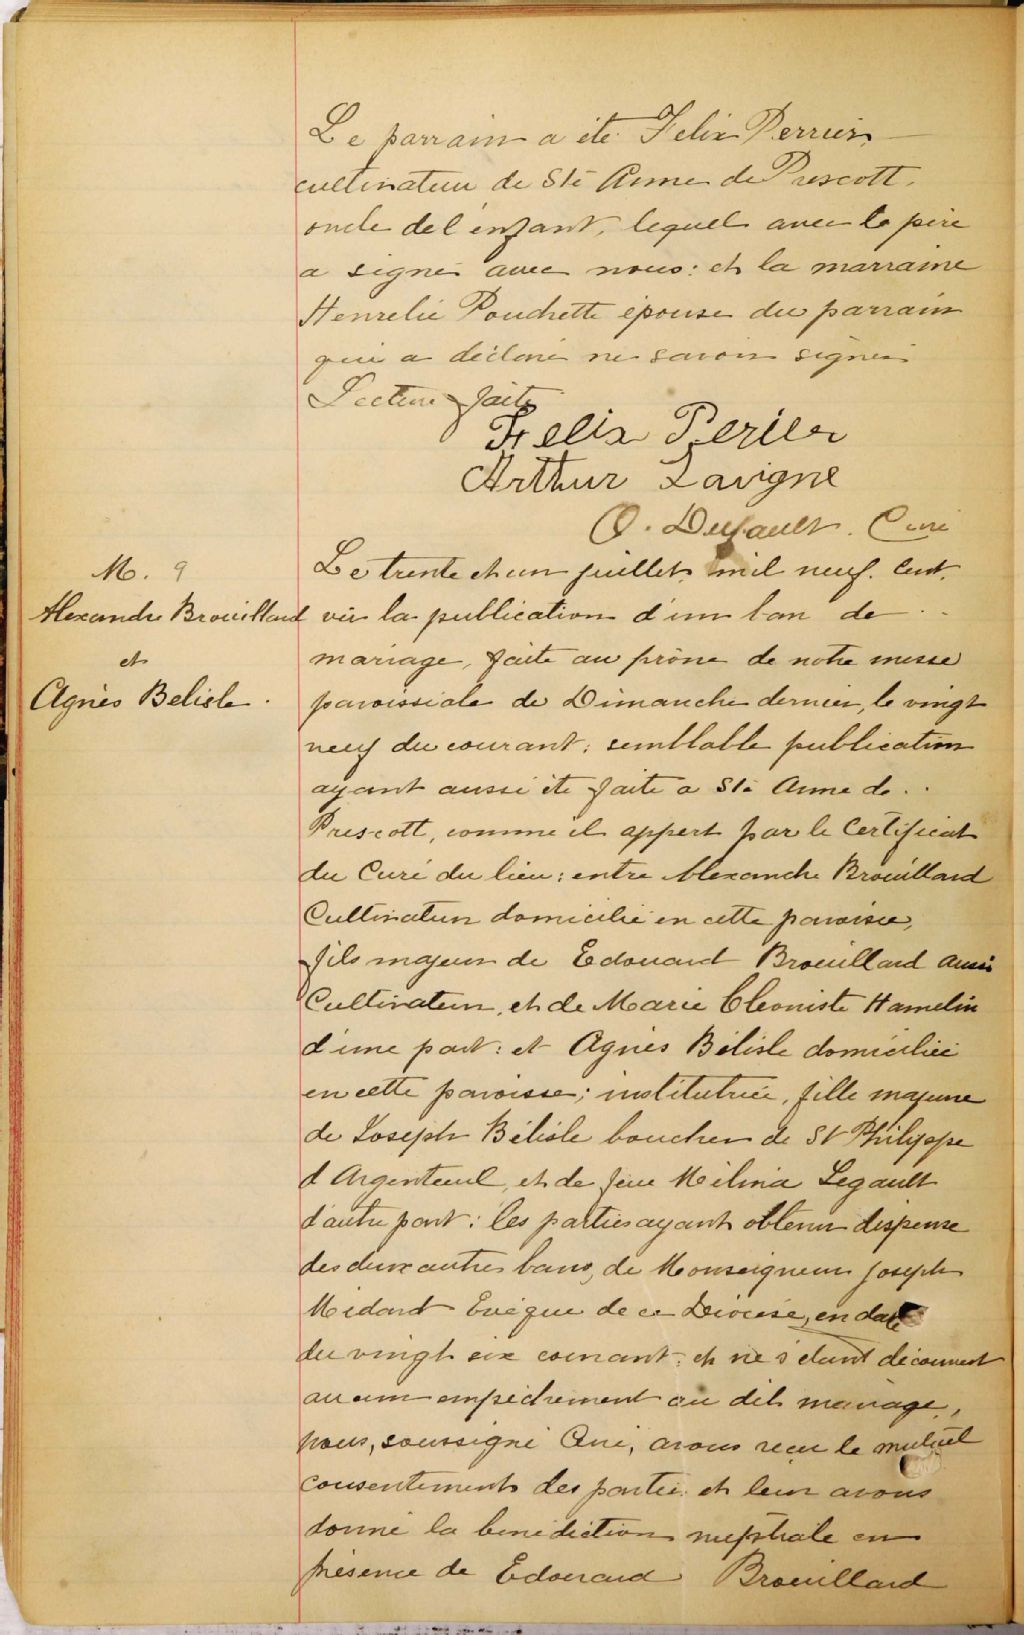 Le parrain a été Felix Perrier,
cultivateur de Ste Anne de Prescott,
oncle de l'enfant, lequel avec le père
a signé avec nous: et la marraine
Henrelie Pouchette épouse du parrain
qui a déclaré ne savoir signer
Lecture faite
Felix Perier
Arthur Lavigne
O. Dufault. Curé
M. 9
Alexandre Brouillard
et
Agnès Belisle.
Le trente et un juillet, mil neuf. Cent.
vû la publication d'un ban de
mariage, faite au prône de notre messe
paroissiale de Dimanche dernier, le vingt
neuf du courant; semblable publication
ayant aussi été faite a Ste Anne de
Prescott, comme il appert par le Certificat
du Curé du lieu: entre Alexandre Brouillard
Cultivateur domicilié en cette paroisse,
fils majeur de Edouard Brouillard aussi
Cultivateur, et de Marie Cleoniste Hamelin
d'une part: et Agnès Bélisle domiciliée
en cette paroisse; institutrice, fille majeure
de Joseph Bélisle boucher de St Philippe
d Argenteuil, et de feue Mélina Legault
d'autre part: les parties ayant obtenu dispense
des deux autres bans, de Monseigneur Joseph
Médard Evêque de ce Diocèse, en date
du vingt six courant; et ne s'étant découvert
aucun empêchement au dit mariage,
nous, soussigné Curé, avons reçu le mutuel
consentement des parties et leur avons
donné la bénédiction nuptiale en
présence de Edouard Brouillard